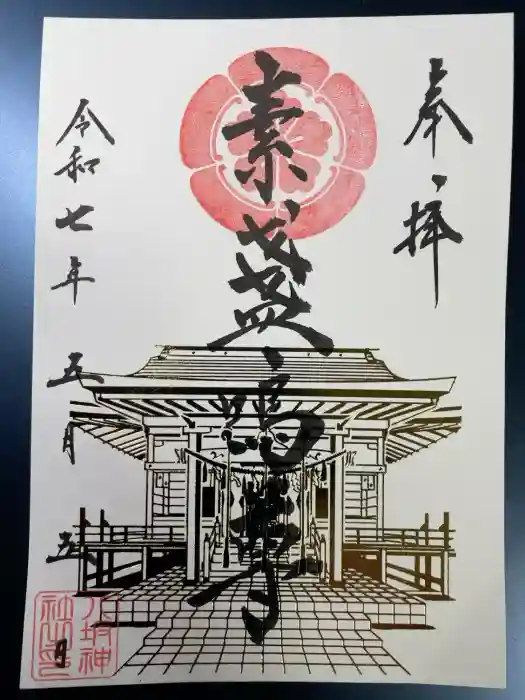 奉拝
素盞嗚尊
令和七年 五月 五日
八坂神
社之印